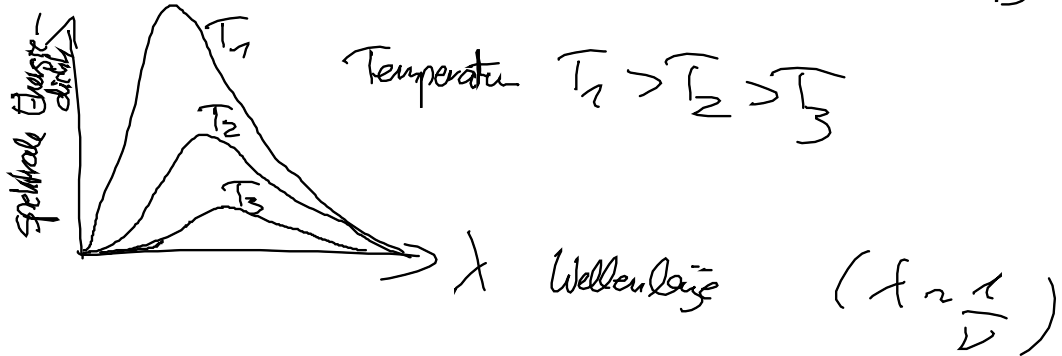 Spektrale Energie-
dichte
T₁
T₂
T₃
Temperatur T₁ > T₂ > T₃
λ Wellenlänge (f ~ 1/ν)